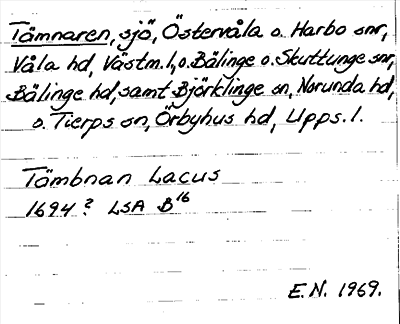 Tämnaren, sjö, Östervåla o. Harbo snr,
Våla hd, Västm. l, o. Bälinge o. Skuttunge snr,
Bälinge hd, samt Björklinge sn, Norunda hd,
o. Tierps sn, Örbyhus hd, Upps. l.
Tämbnan Lacus
1694? LSA B16
E.N. 1969.